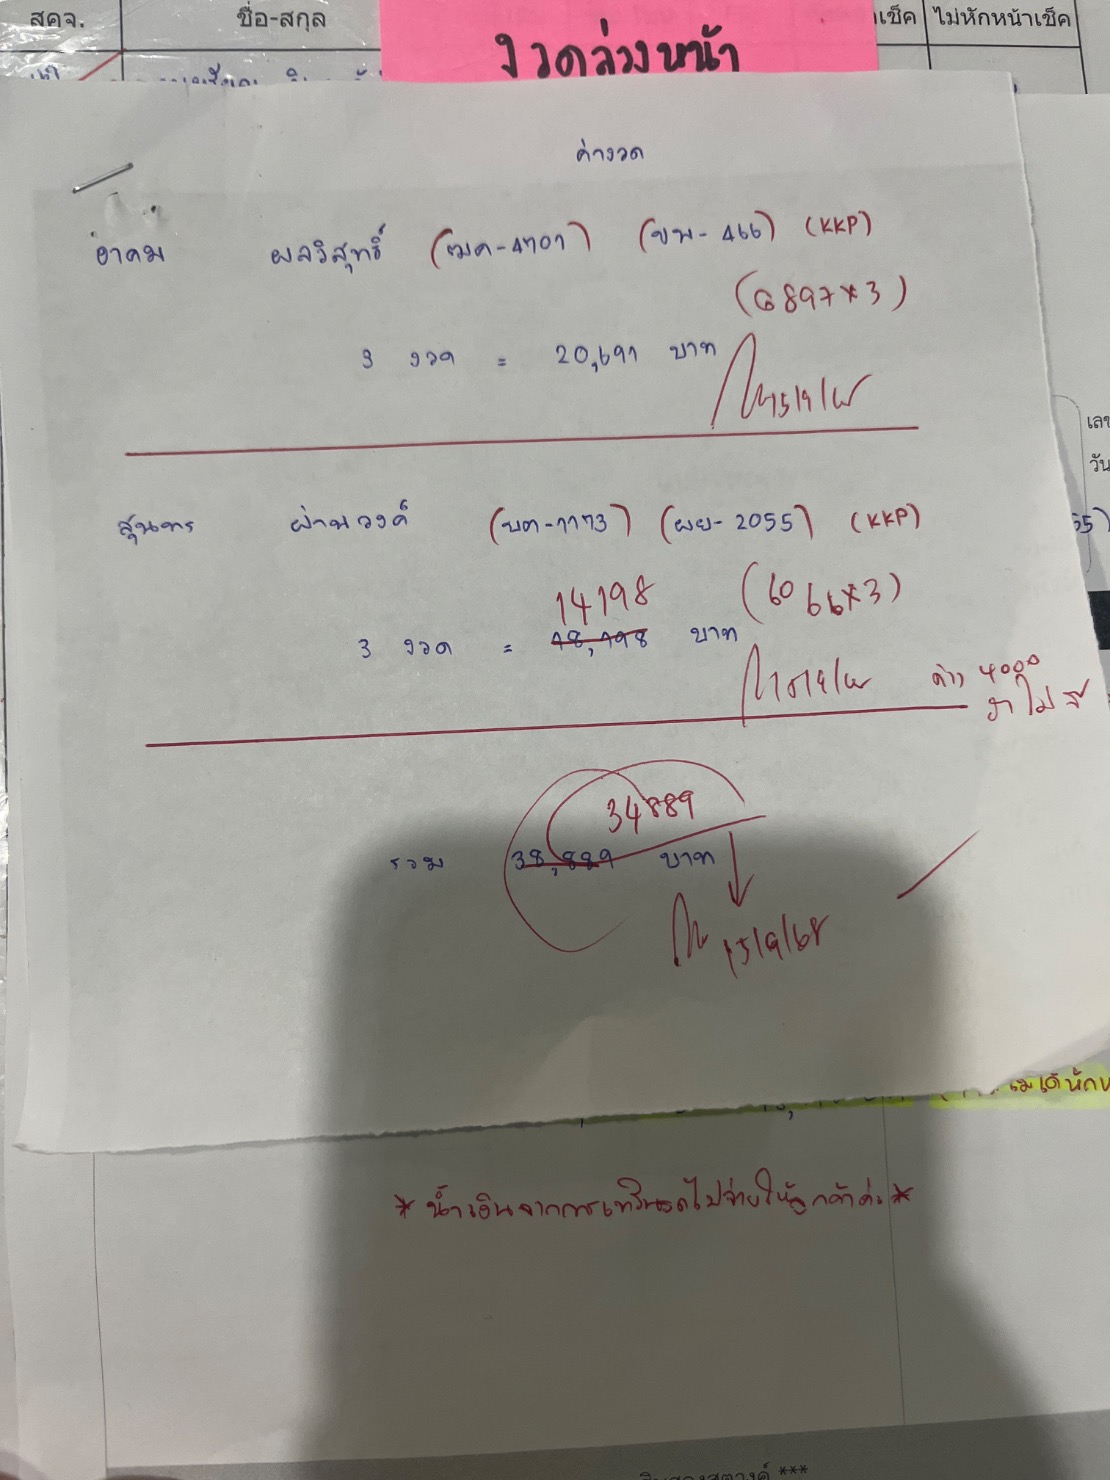 สคจ. ชื่อ-สกุล าเช็ค ไม่หักหน้าเช็ค
งวดล่วงหน้า
ค่างวด
อาคม ผลวิสุทธิ์ (ฒค-4707) (ขพ-466) (KKP)
(6897*3)
3 งวด = 20,691 บาท
15/9/68
สุนทร ผ่านวงค์ (บต-1173) (ผย-2055) (KKP)
14198 (6066*3)
3 งวด = 18,198 บาท
15/9/68 ค่าง 4000
34889
รวม 38,889 บาท
15/9/68
เลข
วัน
55)
*นำเงินจากการเทรินรถไปจ่ายให้ลูกค้าค่ะ*
***